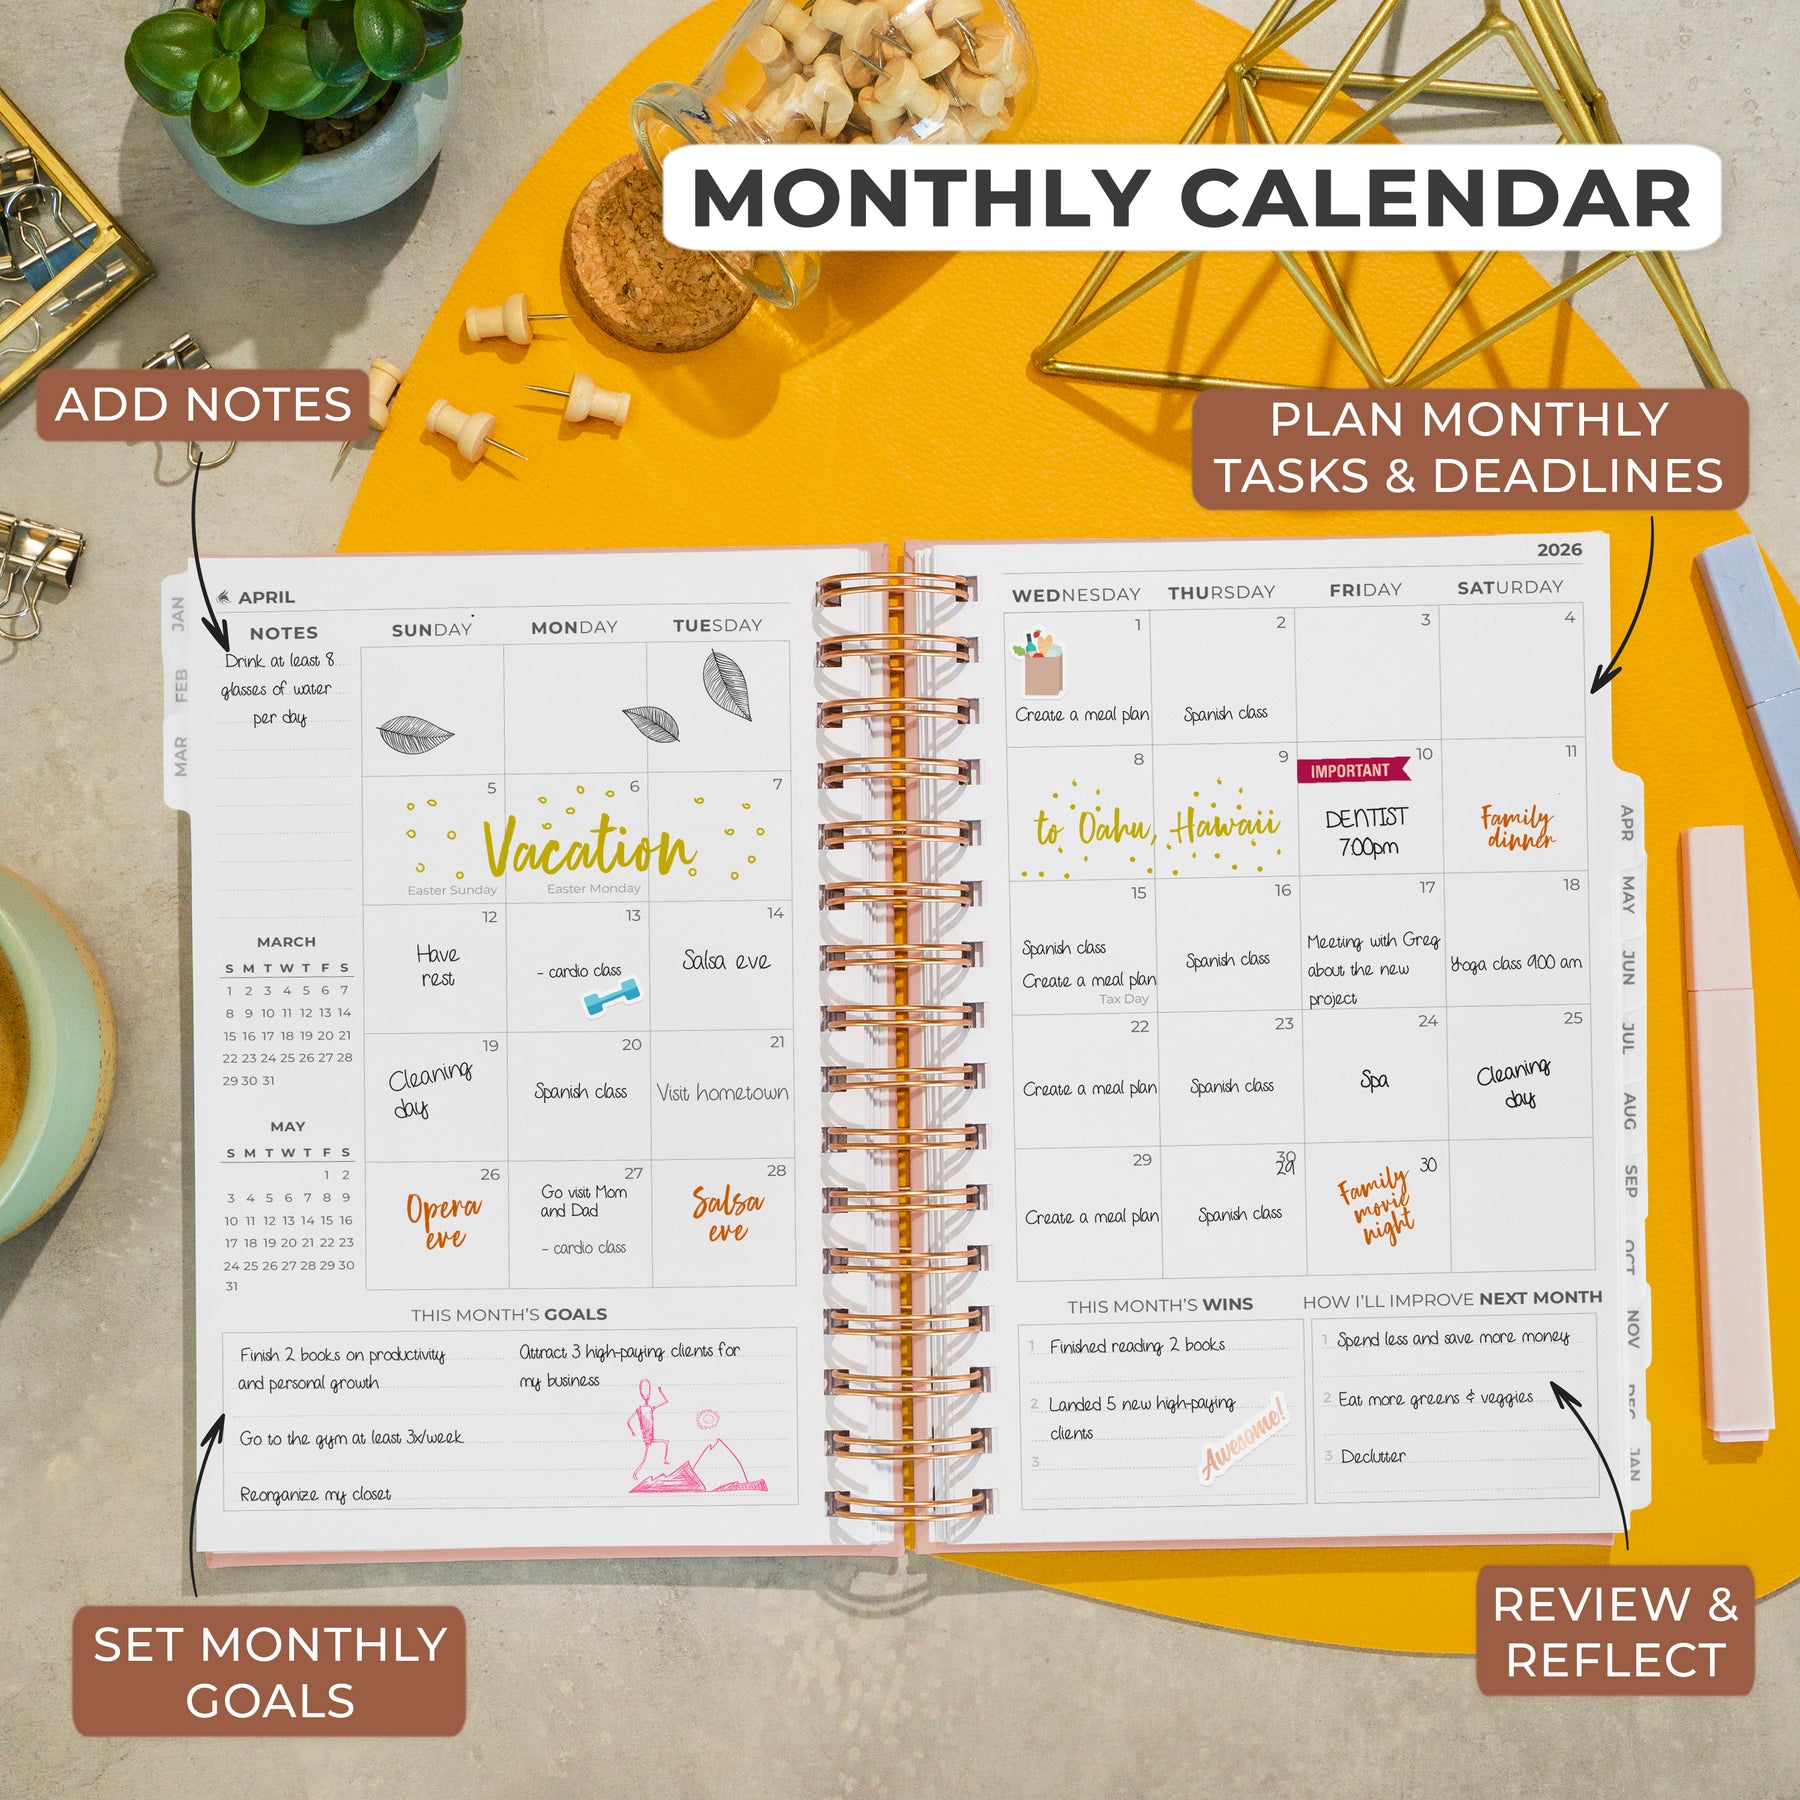 MONTHLY CALENDAR
ADD NOTES
PLAN MONTHLY
TASKS & DEADLINES
JAN
FEB
MAR
APRIL
NOTES
Drink at least 8
glasses of water
per day
SUNDAY MONDAY TUESDAY
5 6 7
Vacation
Easter Sunday Easter Monday
12 13 14
Have
rest
- cardio class
Salsa eve
19 20 21
Cleaning
day
Spanish class
Visit hometown
26 27 28
Opera
eve
Go visit Mom
and Dad
- cardio class
Salsa
eve
MARCH
S M T W T F S
1 2 3 4 5 6 7
8 9 10 11 12 13 14
15 16 17 18 19 20 21
22 23 24 25 26 27 28
29 30 31
MAY
S M T W T F S
1 2
3 4 5 6 7 8 9
10 11 12 13 14 15 16
17 18 19 20 21 22 23
24 25 26 27 28 29 30
31
THIS MONTH'S GOALS
Finish 2 books on productivity
and personal growth
Go to the gym at least 3x/week
Reorganize my closet
Attract 3 high-paying clients for
my business
2026
WEDNESDAY THURSDAY FRIDAY SATURDAY
1 2 3 4
Create a meal plan Spanish class
8 9 10 11
to Oahu, Hawaii
IMPORTANT
DENTIST
7:00pm
Family
dinner
15 16 17 18
Spanish class
Create a meal plan
Tax Day
Spanish class
Meeting with Greg
about the new
project
Yoga class 9:00 am
22 23 24 25
Create a meal plan
Spanish class
Spa
Cleaning
day
29 30
29
30
Create a meal plan
Spanish class
Family
movie
night
THIS MONTH'S WINS
1 Finished reading 2 books
2 Landed 5 new high-paying
clients
3
Awesome!
HOW I'LL IMPROVE NEXT MONTH
1 Spend less and save more money
2 Eat more greens & veggies
3 Declutter
APR
MAY
JUN
JUL
AUG
SEP
OCT
NOV
DEC
JAN
SET MONTHLY
GOALS
REVIEW &
REFLECT